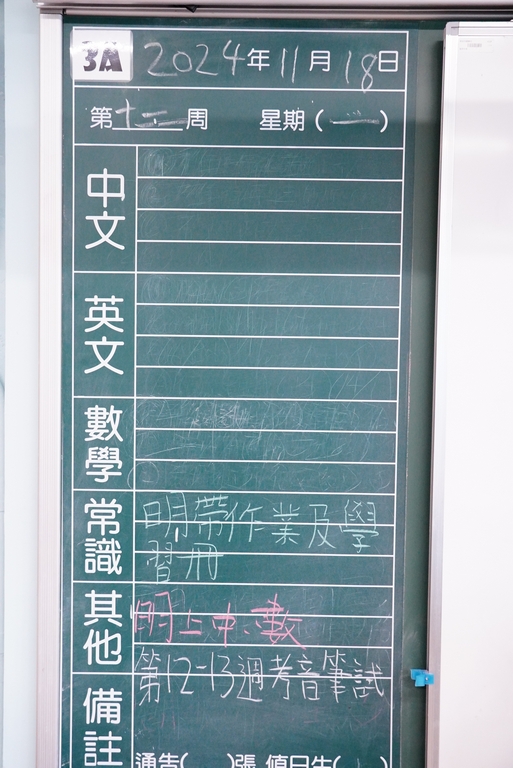 3A 2024年11月18日
第十二周 星期(一)
中文
英文
數學
常識 明帶作業及學
習冊
其他 明上中、數
第12-13週考音筆試
備註
通告( )張 值日生( )